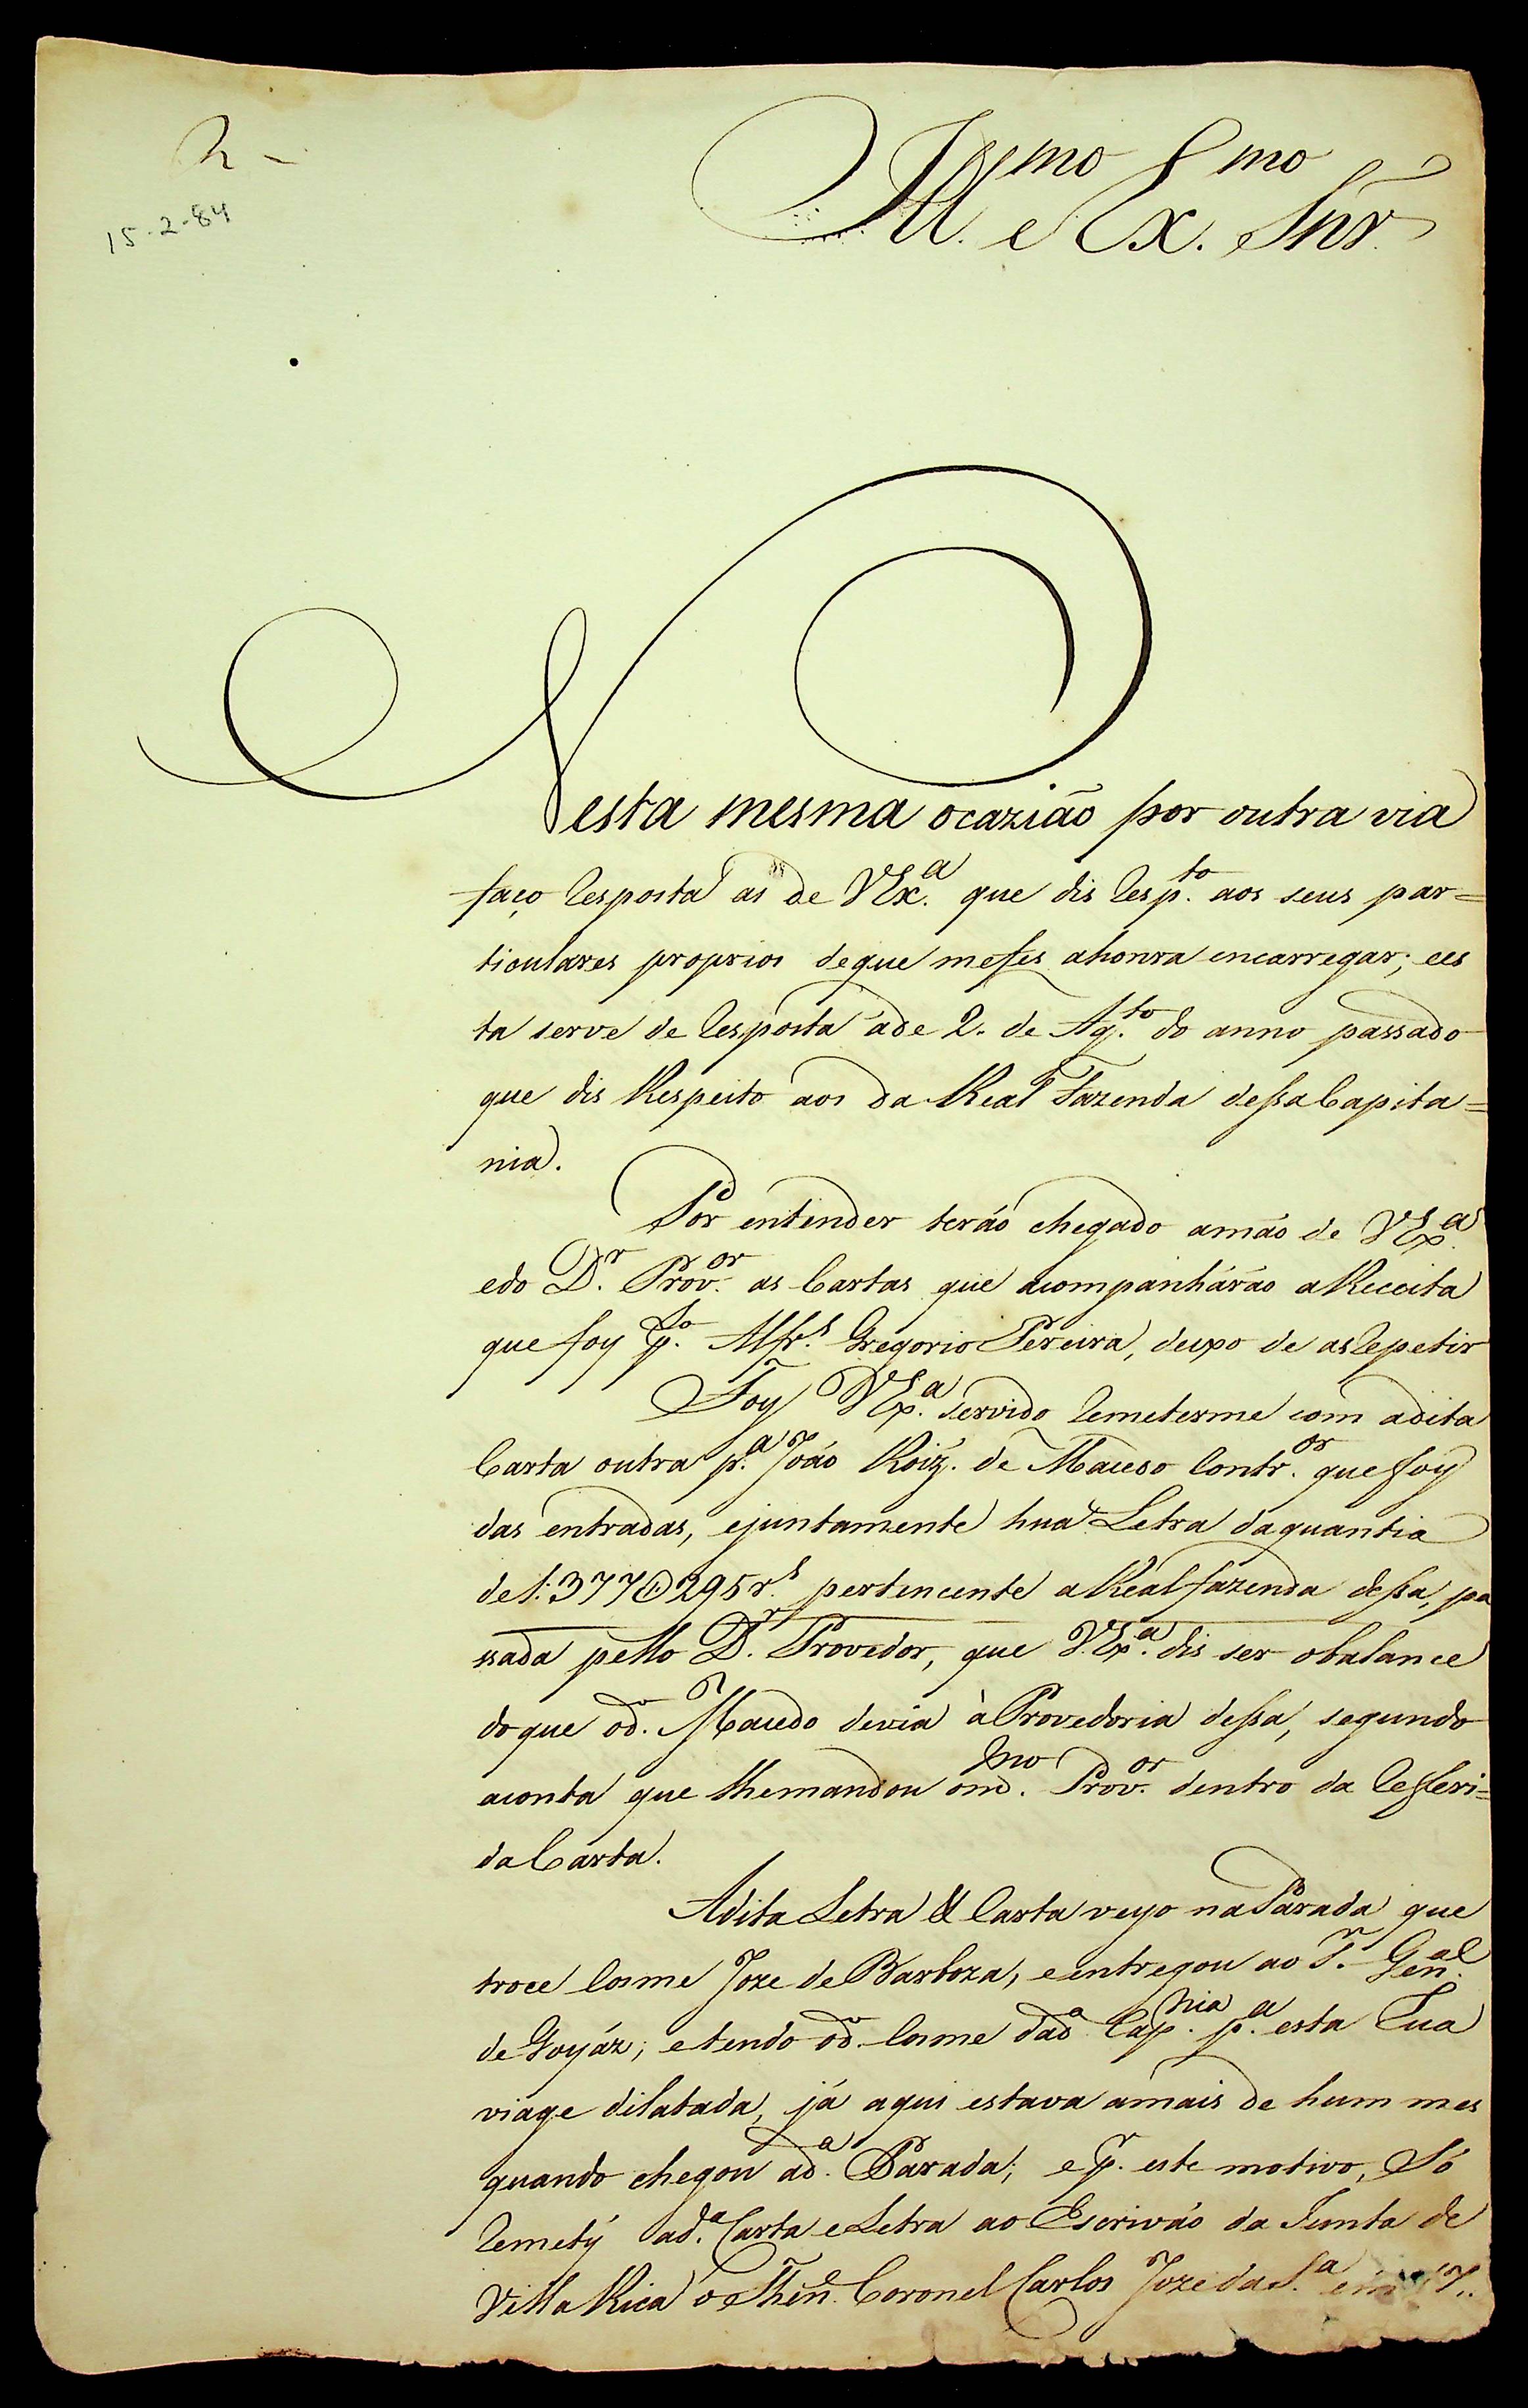 R –
15-2-84
Ill.mo e Ex.mo Snr.
Nesta mesma ocazião por outra via
faço Resposta as de VEx.a que dis Resp.to aos seus par=
ticulares proprios deque mefes ahonra encarregar; ees
ta serve de Resposta áde 2. de Ag.to do anno passado
que dis Respeito aos da Real Fazenda deßa Capita=
nia.
Por entender teráo chegado amáo de VEx.a
edo D.r Prov.or as Cartas que acompanháráo a Receita
que foy p.lo Alfr.s Gregorio Pereira, deixo de as Repetir
Foy VEx.a servido Remeterme com adita
Carta outra p.a João Roiz. de Macedo Contr.or que foy
das entradas, ejuntamente hua Letra daquantia
de 1:377$295 r.s pertencente a Real fazenda deßa, pa
ssada pello D.r Provedor, que V.Ex.a dis ser obalance
doque od.o Macedo devia à Provedoria deßa, segundo
aconta que lhemandou om.mo Prov.or dentro da Refferi=
da Carta.
Adita Letra & Carta veyo na Parada que
troce Cosme Joze de Barboza, e entregou ao S.r Gen.al
de Goyáz; e tendo od.o Cosme dad.a Cap.nia p.a esta Sua
viage dilatada, já aqui estava amais de hum mes
quando chegou ad.a Parada; e p.r este motivo, Só
Remetý ad.a Carta e Letra ao Escriváo da Junta de
Villa Rica o Then.e Coronel Carlos Joze da S.a em